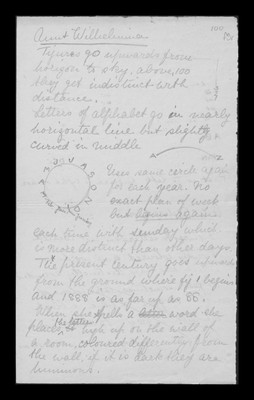 Aunt Wilhelmina
100
Figures go upwards from
horizon to sky. above 100
they get indistinct with
distance.
Letters of alphabet go in nearly
horizontal line but slightly
curved in middle
Uses same circle again
for each year. No
exact plan of week
but begins again
each time with Sunday which
is more distinct than other days.
The present century goes upwards
from the ground where fig 1 begins
and 1888 is as far up as 88.
When she spells a word she
places the letters high up on the wall of
a room, coloured differently from
the wall, if it is dark they are
luminous.
J
F
M
A
M
J
J
A
S
O
N
D